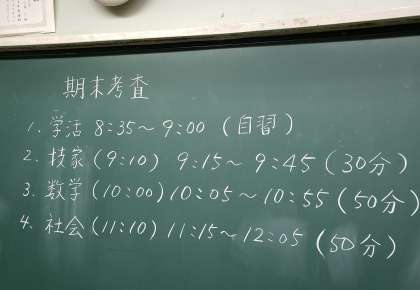 期末考査
1. 学活 8:35～9:00 (自習)
2. 技家 (9:10) 9:15～9:45 (30分)
3. 数学 (10:00) 10:05～10:55 (50分)
4. 社会 (11:10) 11:15～12:05 (50分)